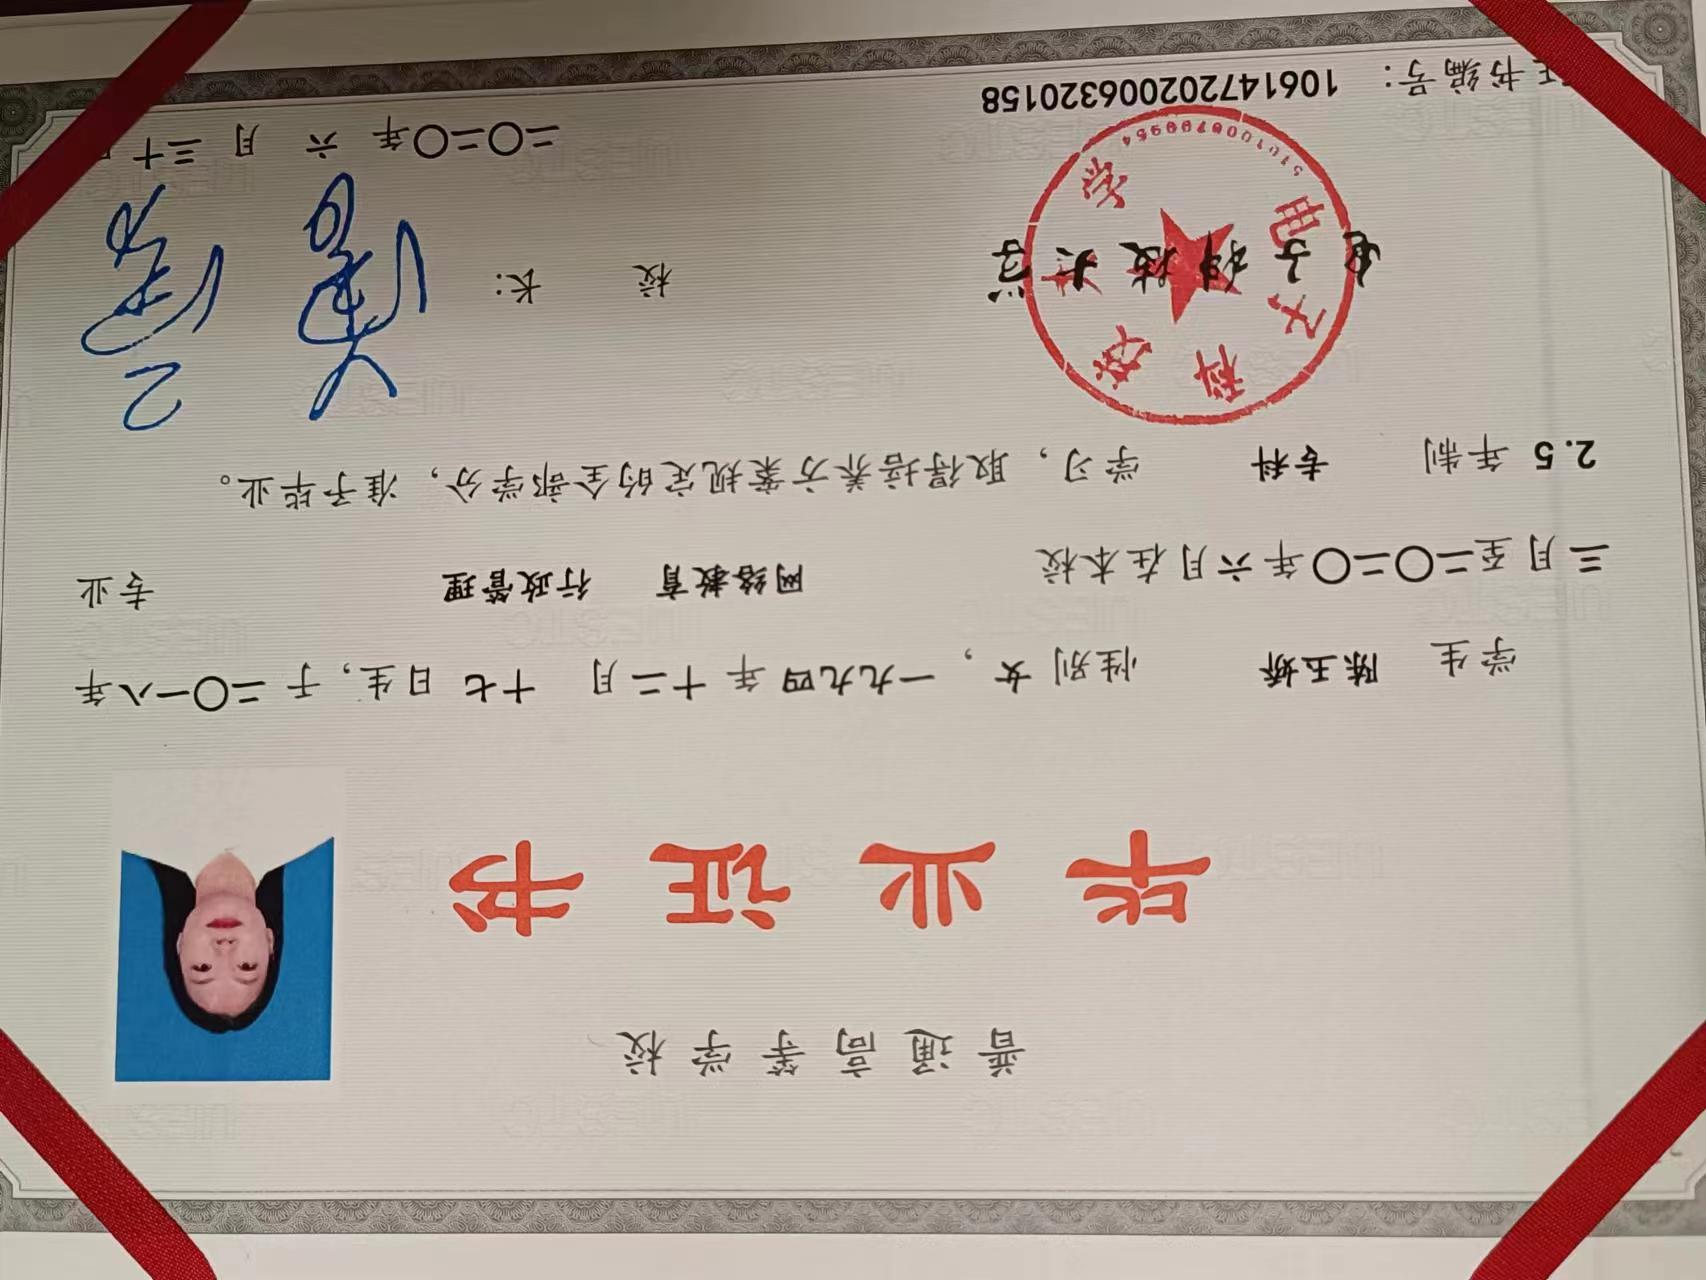 普通高等学校
毕业证书
学生 陈玉娇 性别 女，一九九四年十二月 十七 日生，于二〇一八年
三月至二〇二〇年六月在本校 网络教育 行政管理 专业
2.5 年制 专科 学习，取得培养方案规定的全部学分，准予毕业。
电子科技大学 校 长：
二〇二〇年 六 月 三十
书编号：106147202006320158
电子科技大学
UESTC